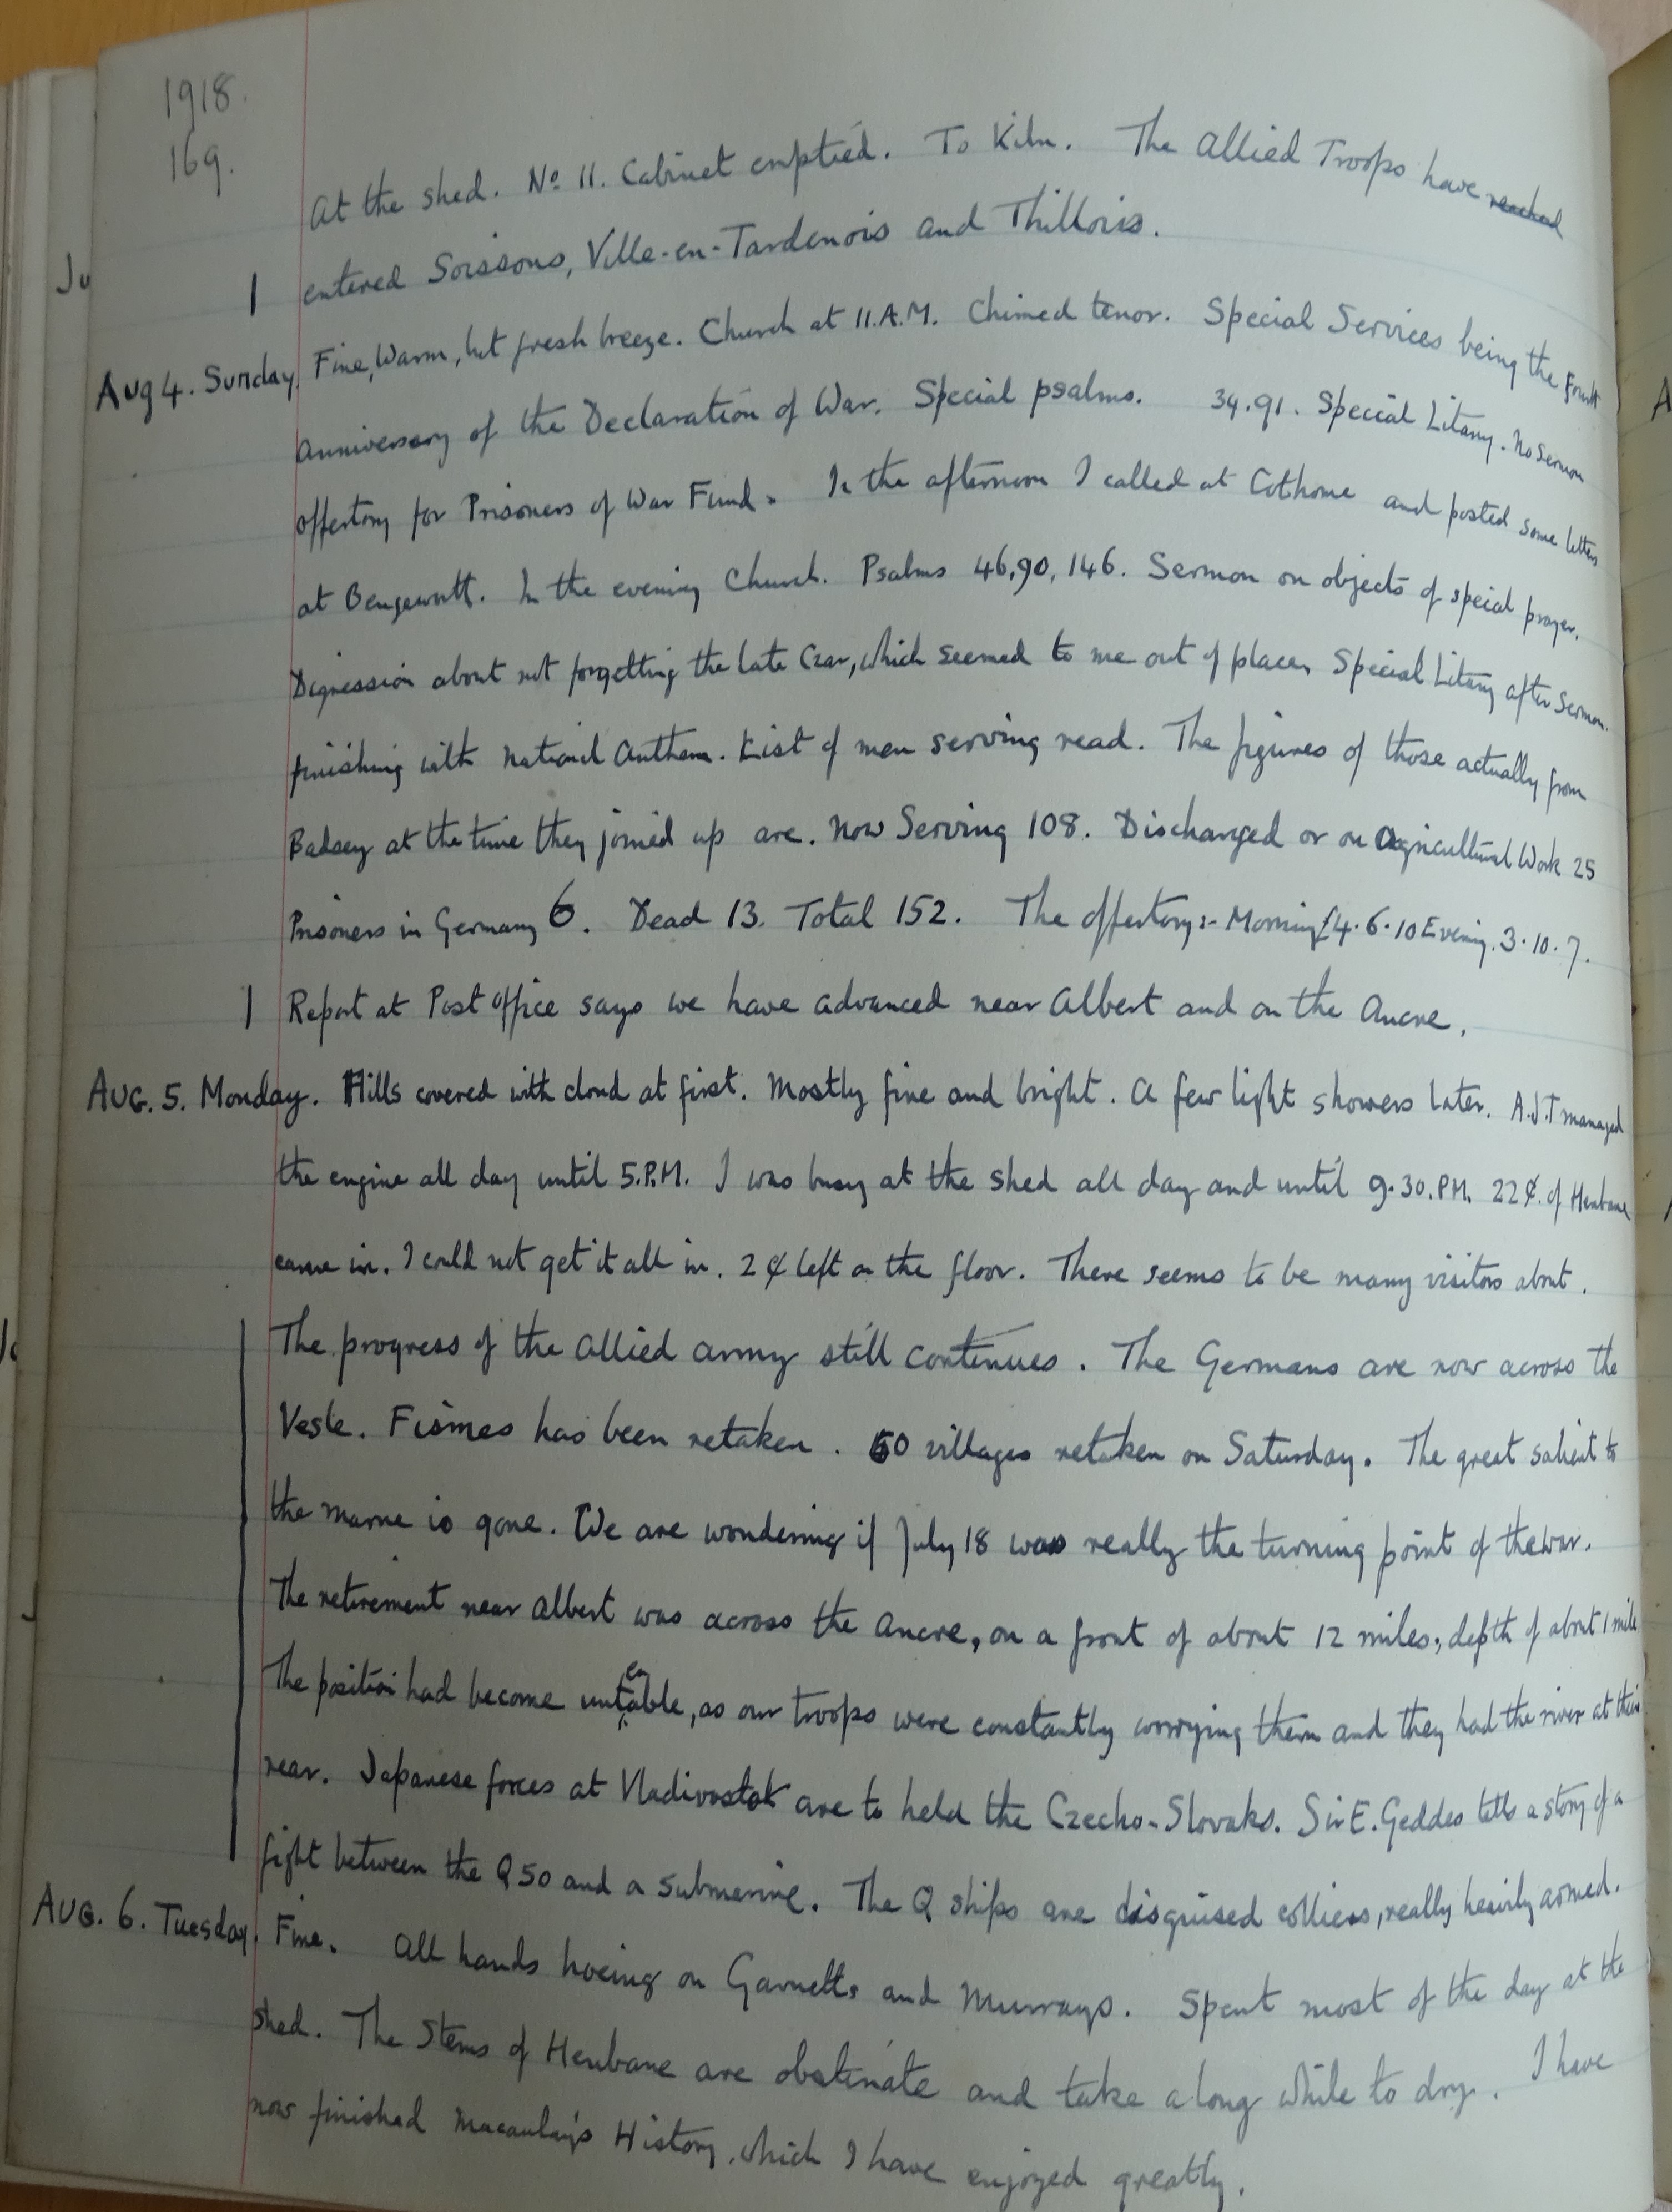 1918.
169.
At the shed. No 11. Cabinet emptied. To Kiln. The Allied Troops have reached
entered Soissons, Ville-en-Tardenois and Thillois.
Aug 4. Sunday. Fine, Warm, but fresh breeze. Church at 11.A.M. Chimed tenor. Special Services being the Fourth
Anniversary of the Declaration of War. Special psalms. 34.91. Special Litany. No Sermon
Offertory for Prisoners of War Fund. In the afternoon I called at Cothome and posted some letters
at Bengeworth. In the evening Church. Psalms 46,90,146. Sermon on objects of special prayer.
Digression about not forgetting the late Czar, which seemed to me out of place. Special Litany after Sermon.
finishing with National Anthem. List of men serving read. The figures of those actually from
Badsey at the time they joined up are. Now Serving 108. Discharged or on Agricultural Work 25
Prisoners in Germany 6. Dead 13. Total 152. The offertory:- Morning £4.6.10 Evening. 3.10.7.
Report at Post office says we have advanced near Albert and on the Ancre.
AUG. 5. Monday. Hills covered with cloud at first. Mostly fine and bright. A few light showers later. A.J.T managed
the engine all day until 5.P.M. I was busy at the shed all day and until 9.30.P.M. 22 ¢. of Henbane
came in. I could not get it all in. 2 ¢ left on the floor. There seems to be many visitors about.
The progress of the Allied army still continues. The Germans are now across the
Vesle. Fismes has been retaken. 50 villages retaken on Saturday. The great salient to
the Marne is gone. We are wondering if July 18 was really the turning point of the war.
The retirement near Albert was across the Ancre, on a front of about 12 miles, depth of about 1 mile
The position had become untenable, as our troops were constantly worrying them and they had the river at their
rear. Japanese forces at Vladivostok are to held the Czecho-Slovaks. Sir E. Geddes tells a story of a
fight between the Q50 and a submarine. The Q ships are disguised colliers, really heavily armed.
AUG. 6. Tuesday. Fine. All hands hoeing on Garnetts and Murrays. Spent most of the day at the
shed. The Stems of Henbane are obstinate and take a long while to dry. I have
now finished Macaulay's History, which I have enjoyed greatly.